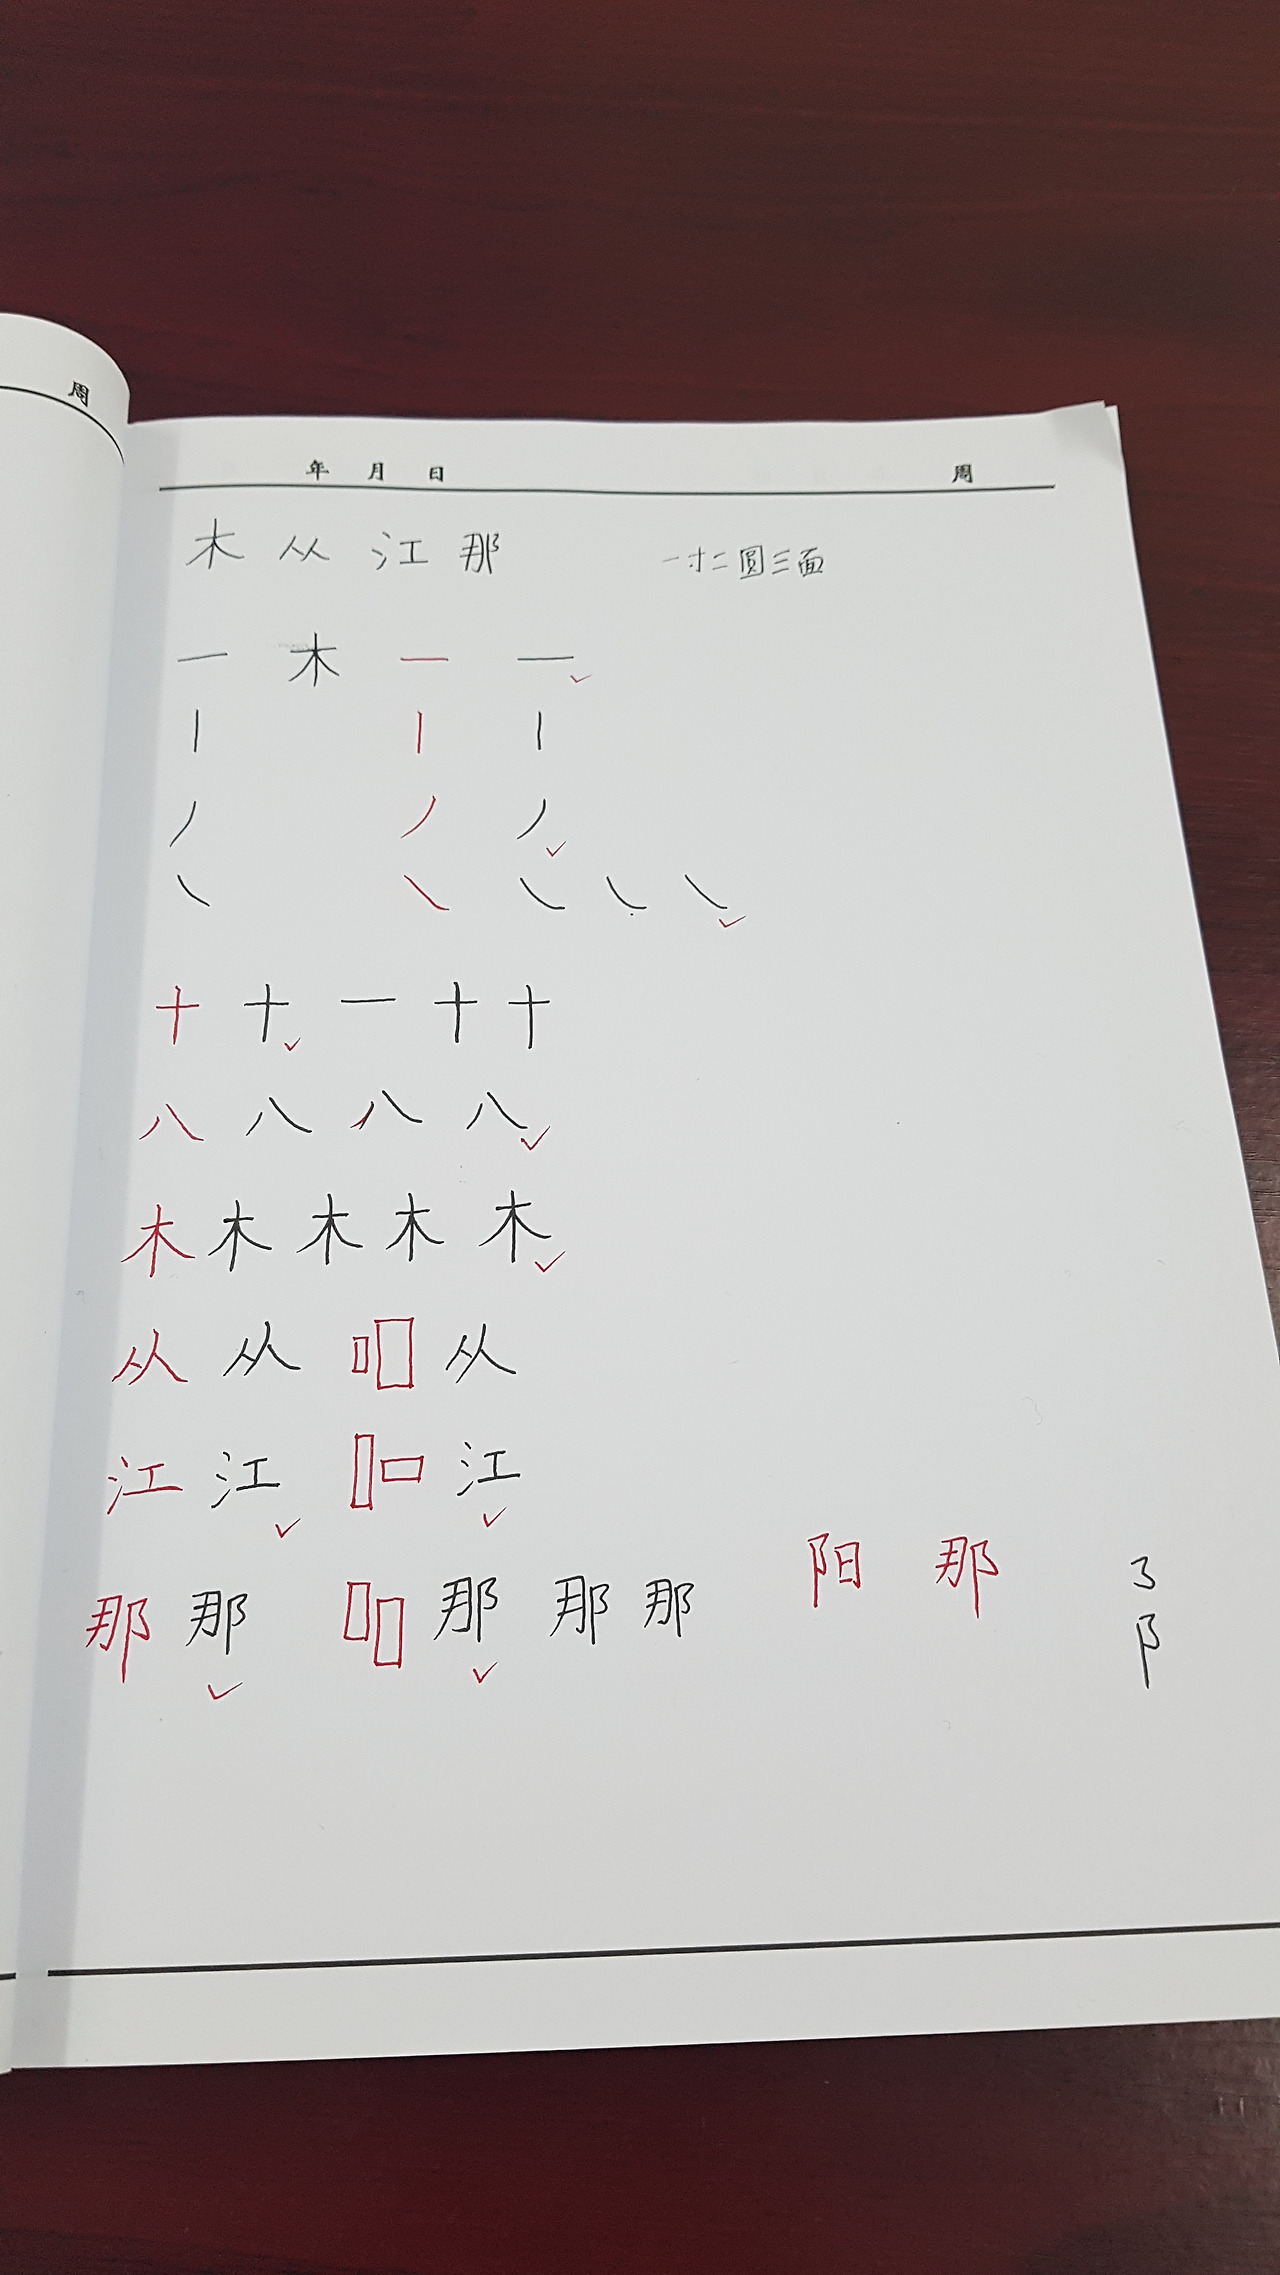 周
年 月 日 周
木 从 江 那 一寸二圆三面
一 木 一 一
丨 丨 丨
丿 丿 丿
㇏ ㇏ ㇏ ㇏ ㇏
十 十 一 十 十
八 八 八 八
木 木 木 木 木
从 从 从
江 江 江
那 那 那 那 那 阳 那 ㇌
阝